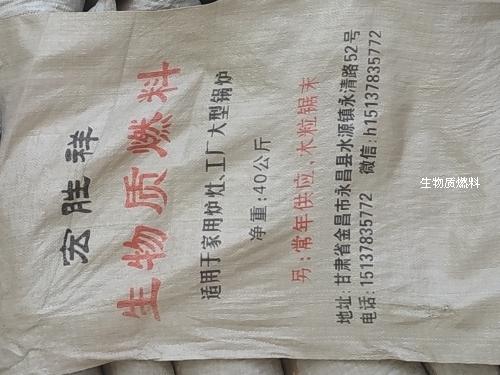 宏胜祥
生物质燃料
适用于家用炉灶、工厂大型锅炉
净重:40公斤
另:常年供应,木粒锯末
地址:甘肃省金昌市永昌县水源镇永清路52号
电话:15137835772 微信:h15137835772
生物质燃料